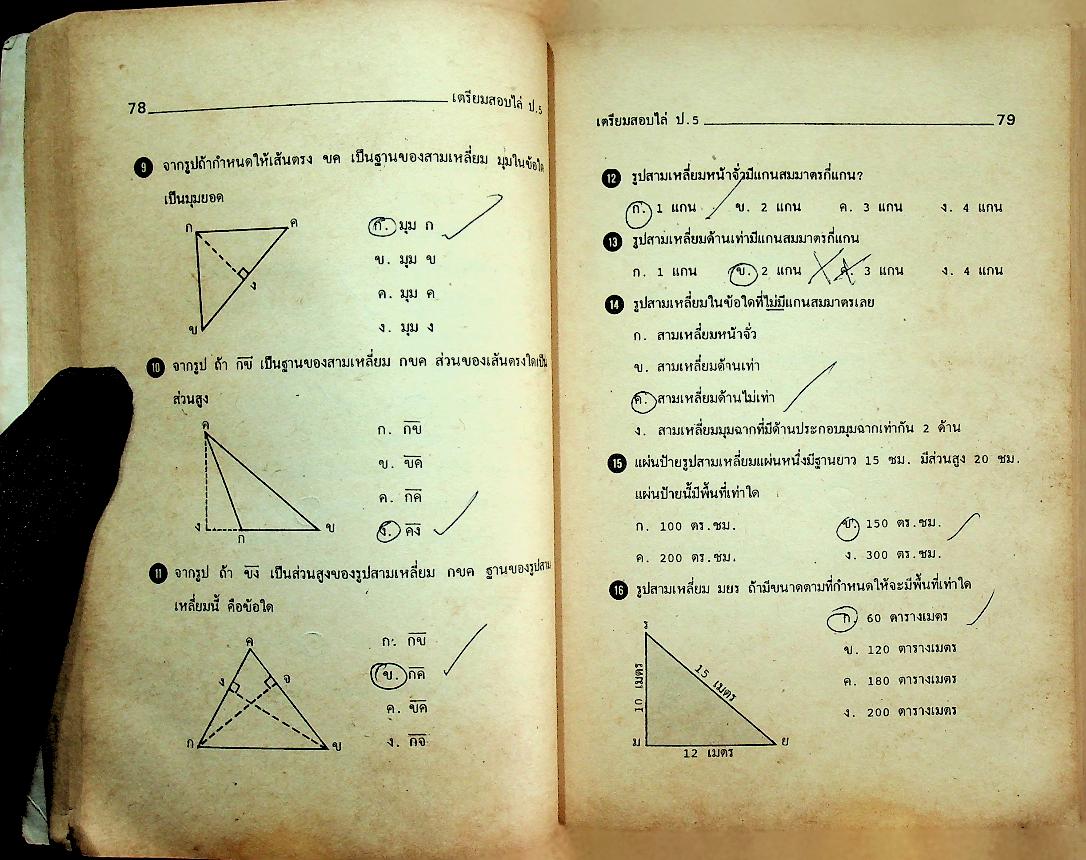 78 เตรียมสอบไล่ ป.5
9 จากรูปถ้ากำหนดให้เส้นตรง ขค เป็นฐานของสามเหลี่ยม มุมในข้อใด
เป็นมุมยอด
ก ค ง ข
ก. มุม ก
ข. มุม ข
ค. มุม ค
ง. มุม ง
10 จากรูป ถ้า กข เป็นฐานของสามเหลี่ยม กขค ส่วนของเส้นตรงใดเป็น
ส่วนสูง
ค ง ก ข
ก. กข
ข. ขค
ค. กค
ง. คง
11 จากรูป ถ้า ขง เป็นส่วนสูงของรูปสามเหลี่ยม กขค ฐานของรูปสาม
เหลี่ยมนี้ คือข้อใด
ค ง จ ก ข
ก. กข
ข. กค
ค. ขค
ง. กจ
เตรียมสอบไล่ ป.5 79
12 รูปสามเหลี่ยมหน้าจั่วมีแกนสมมาตรกี่แกน?
ก. 1 แกน ข. 2 แกน ค. 3 แกน ง. 4 แกน
13 รูปสามเหลี่ยมด้านเท่ามีแกนสมมาตรกี่แกน
ก. 1 แกน ข. 2 แกน ค. 3 แกน ง. 4 แกน
14 รูปสามเหลี่ยมในข้อใดที่ไม่มีแกนสมมาตรเลย
ก. สามเหลี่ยมหน้าจั่ว
ข. สามเหลี่ยมด้านเท่า
ค. สามเหลี่ยมด้านไม่เท่า
ง. สามเหลี่ยมมุมฉากที่มีด้านประกอบมุมฉากเท่ากัน 2 ด้าน
15 แผ่นป้ายรูปสามเหลี่ยมแผ่นหนึ่งมีฐานยาว 15 ซม. มีส่วนสูง 20 ซม.
แผ่นป้ายนี้มีพื้นที่เท่าใด
ก. 100 ตร.ซม. ข. 150 ตร.ซม.
ค. 200 ตร.ซม. ง. 300 ตร.ซม.
16 รูปสามเหลี่ยม มยร ถ้ามีขนาดตามที่กำหนดให้จะมีพื้นที่เท่าใด
ร
10 เมตร
15 เมตร
ม ย
12 เมตร
ก. 60 ตารางเมตร
ข. 120 ตารางเมตร
ค. 180 ตารางเมตร
ง. 200 ตารางเมตร